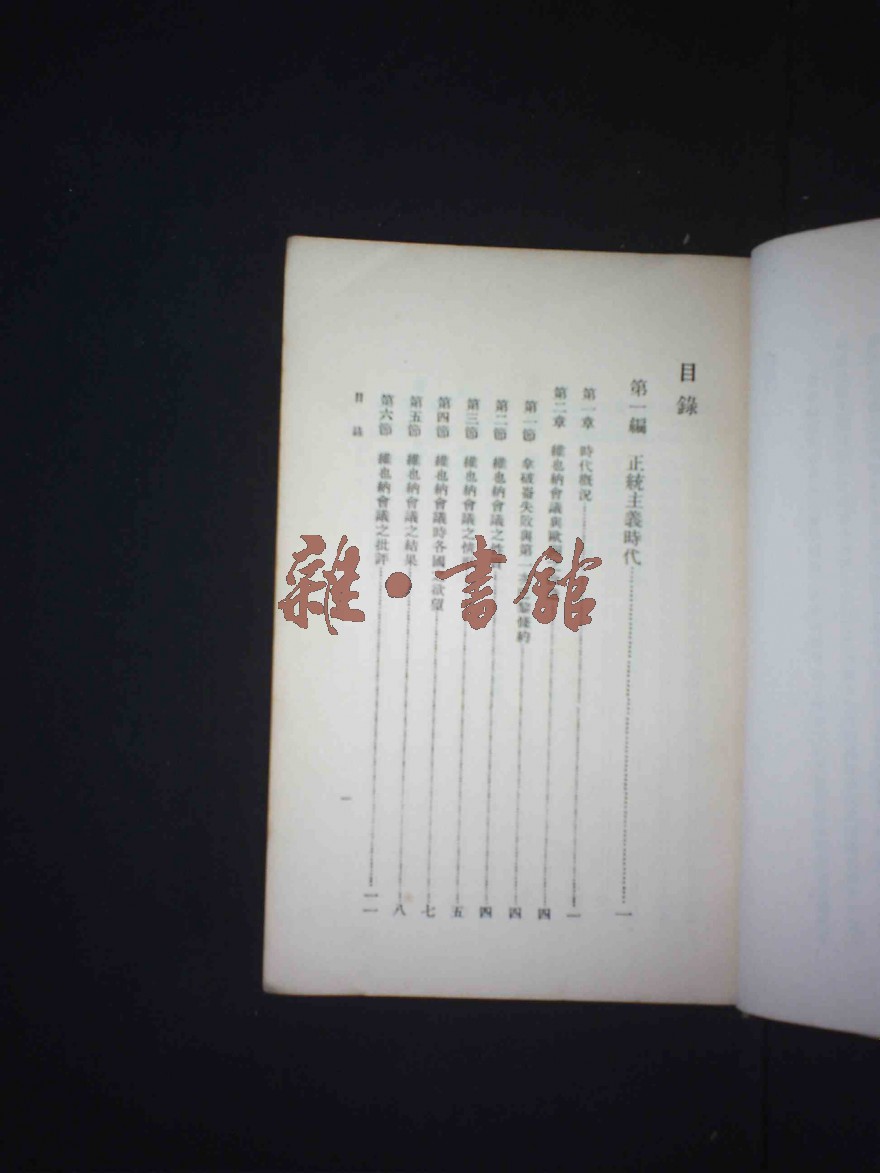 目錄
第一編 正統主義時代 一
第一章 時代概況 一
第二章 維也納會議與歐 四
第一節 拿破崙失敗與第一 黎條約 四
第二節 維也納會議之 四
第三節 維也納會議之情 五
第四節 維也納會議時各國 欲望 七
第五節 維也納會議之結果 八
第六節 維也納會議之批評 一一
目錄
一
雜·書館